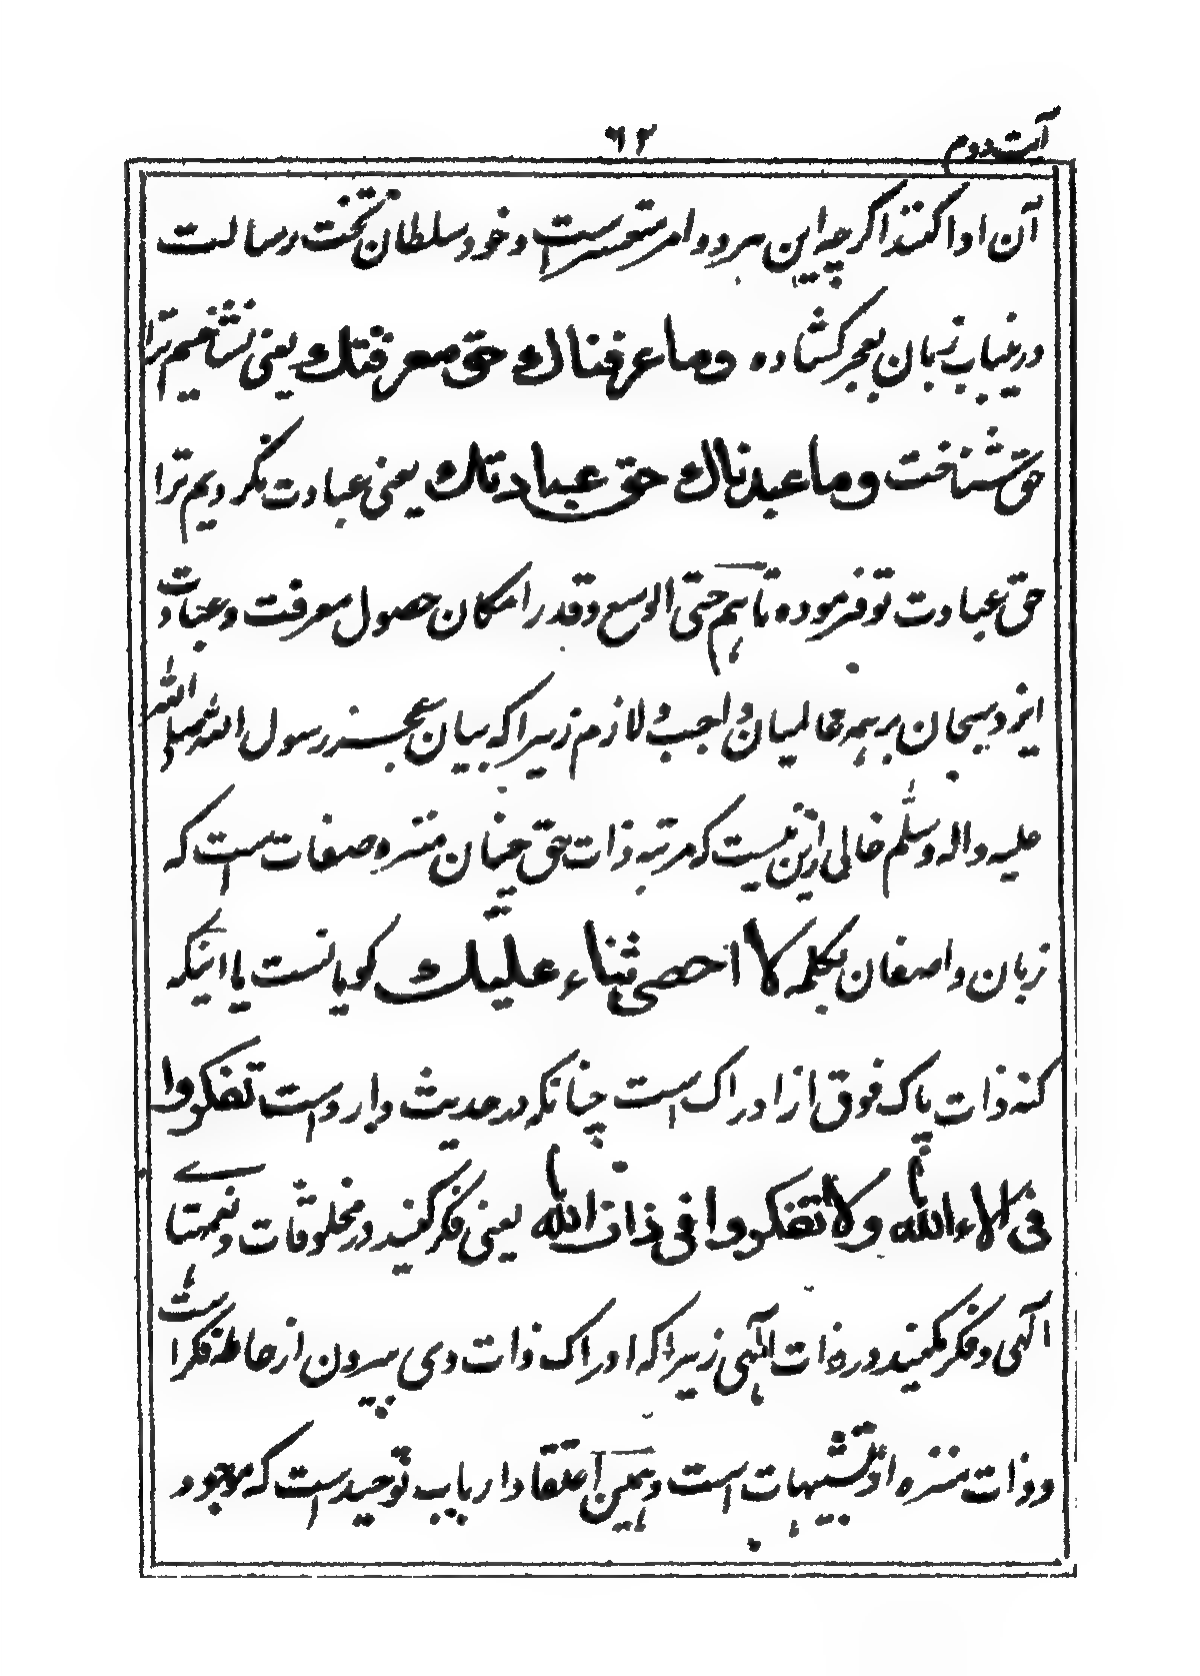 آیت دوم
۶۲
آن ادا کنند اگرچه این هر دو امر متعسر است و خود سلطان تخت رسالت
درینباب زبان بعجز کشاده وما عرفناك حق معرفتك یعنی نشناختیم ترا
حق شناخت وما عبدناك حق عبادتك یعنی عبادت نکردیم ترا
حق عبادت تو فرموده تاهم حتی الوسع و قدر امکان حصول معرفت و عبادت
ایزد سبحان بر همه عالمیان واجب و لازم زیرا که بیان عجز رسول الله صلے الله
علیه واله وسلم خالی ازین نیست که مرتبه ذات حق چنان منزه صفات است که
زبان واصفان بکلمه لا احصی ثناء علیك کویا نست یا اینکه
کنه ذات پاک فوق از ادراک است چنانکه در حدیث وارد است تفکروا
فی الاء الله ولا تفکروا فی ذات الله یعنی فکر کنید در مخلوقات و نعمتهاے
الهی و فکر مکنید در ذات الهی زیرا که ادراک ذات وی بیرون از احاطه فکر است
و ذات منزه از تشبیهات است و همین اعتقاد ارباب توحید است که موجود